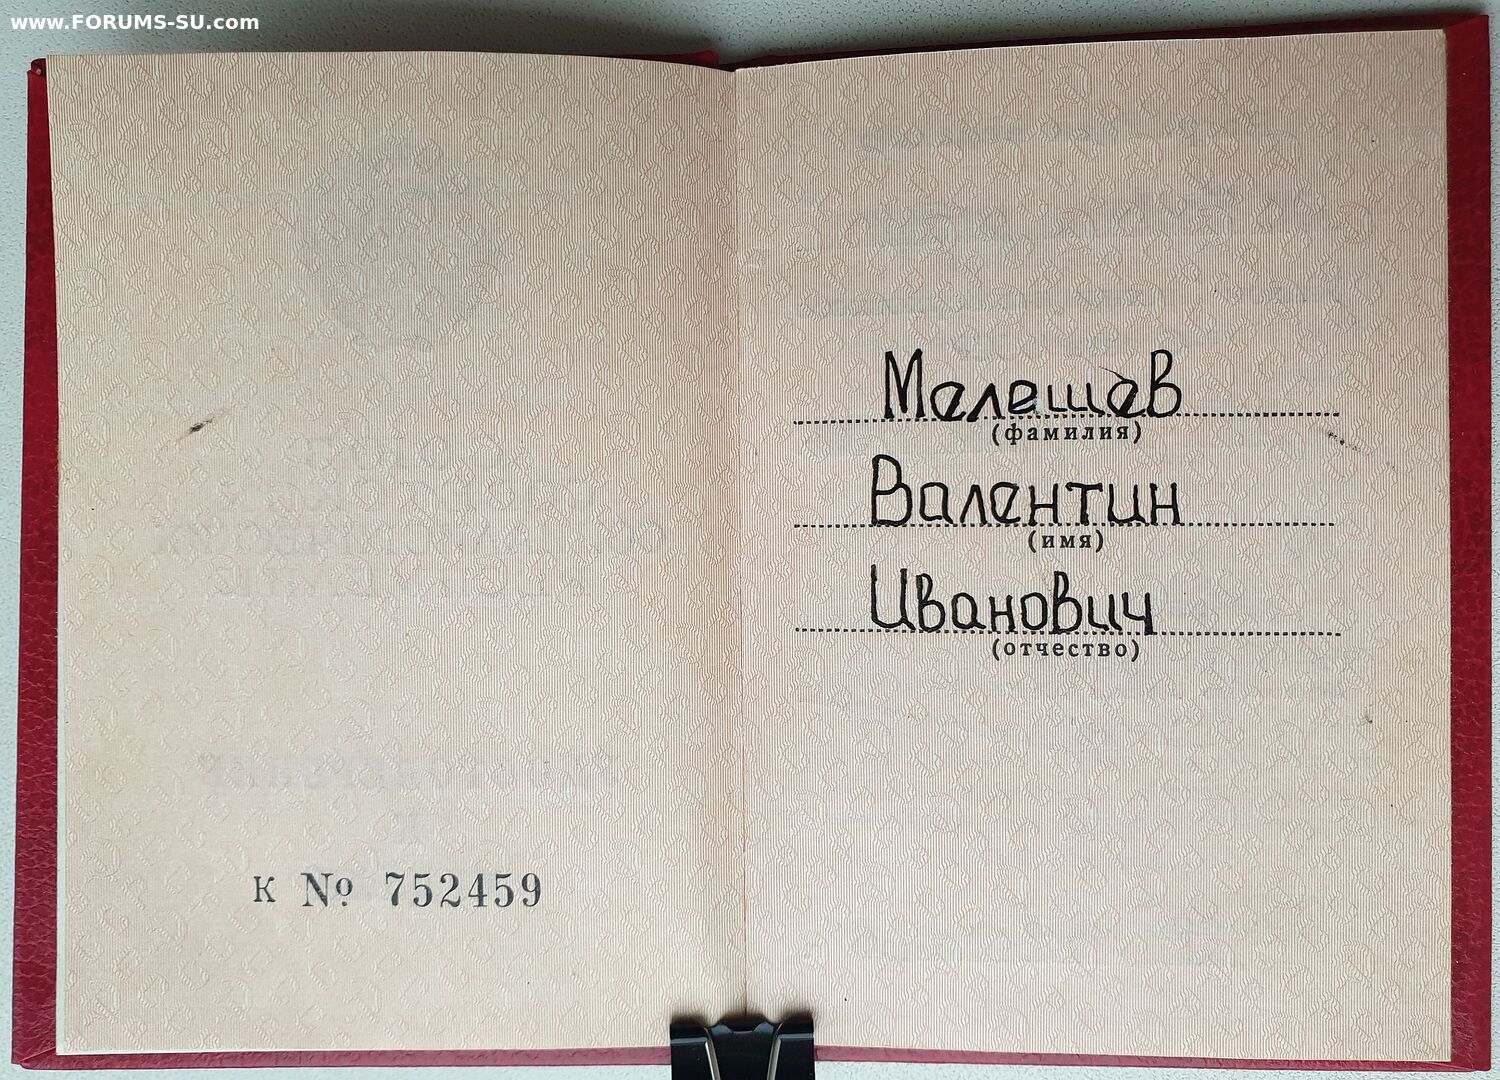 www.FORUMS-SU.com
К № 752459
(фамилия)
Валентин
(имя)
Иванович
(отчество)